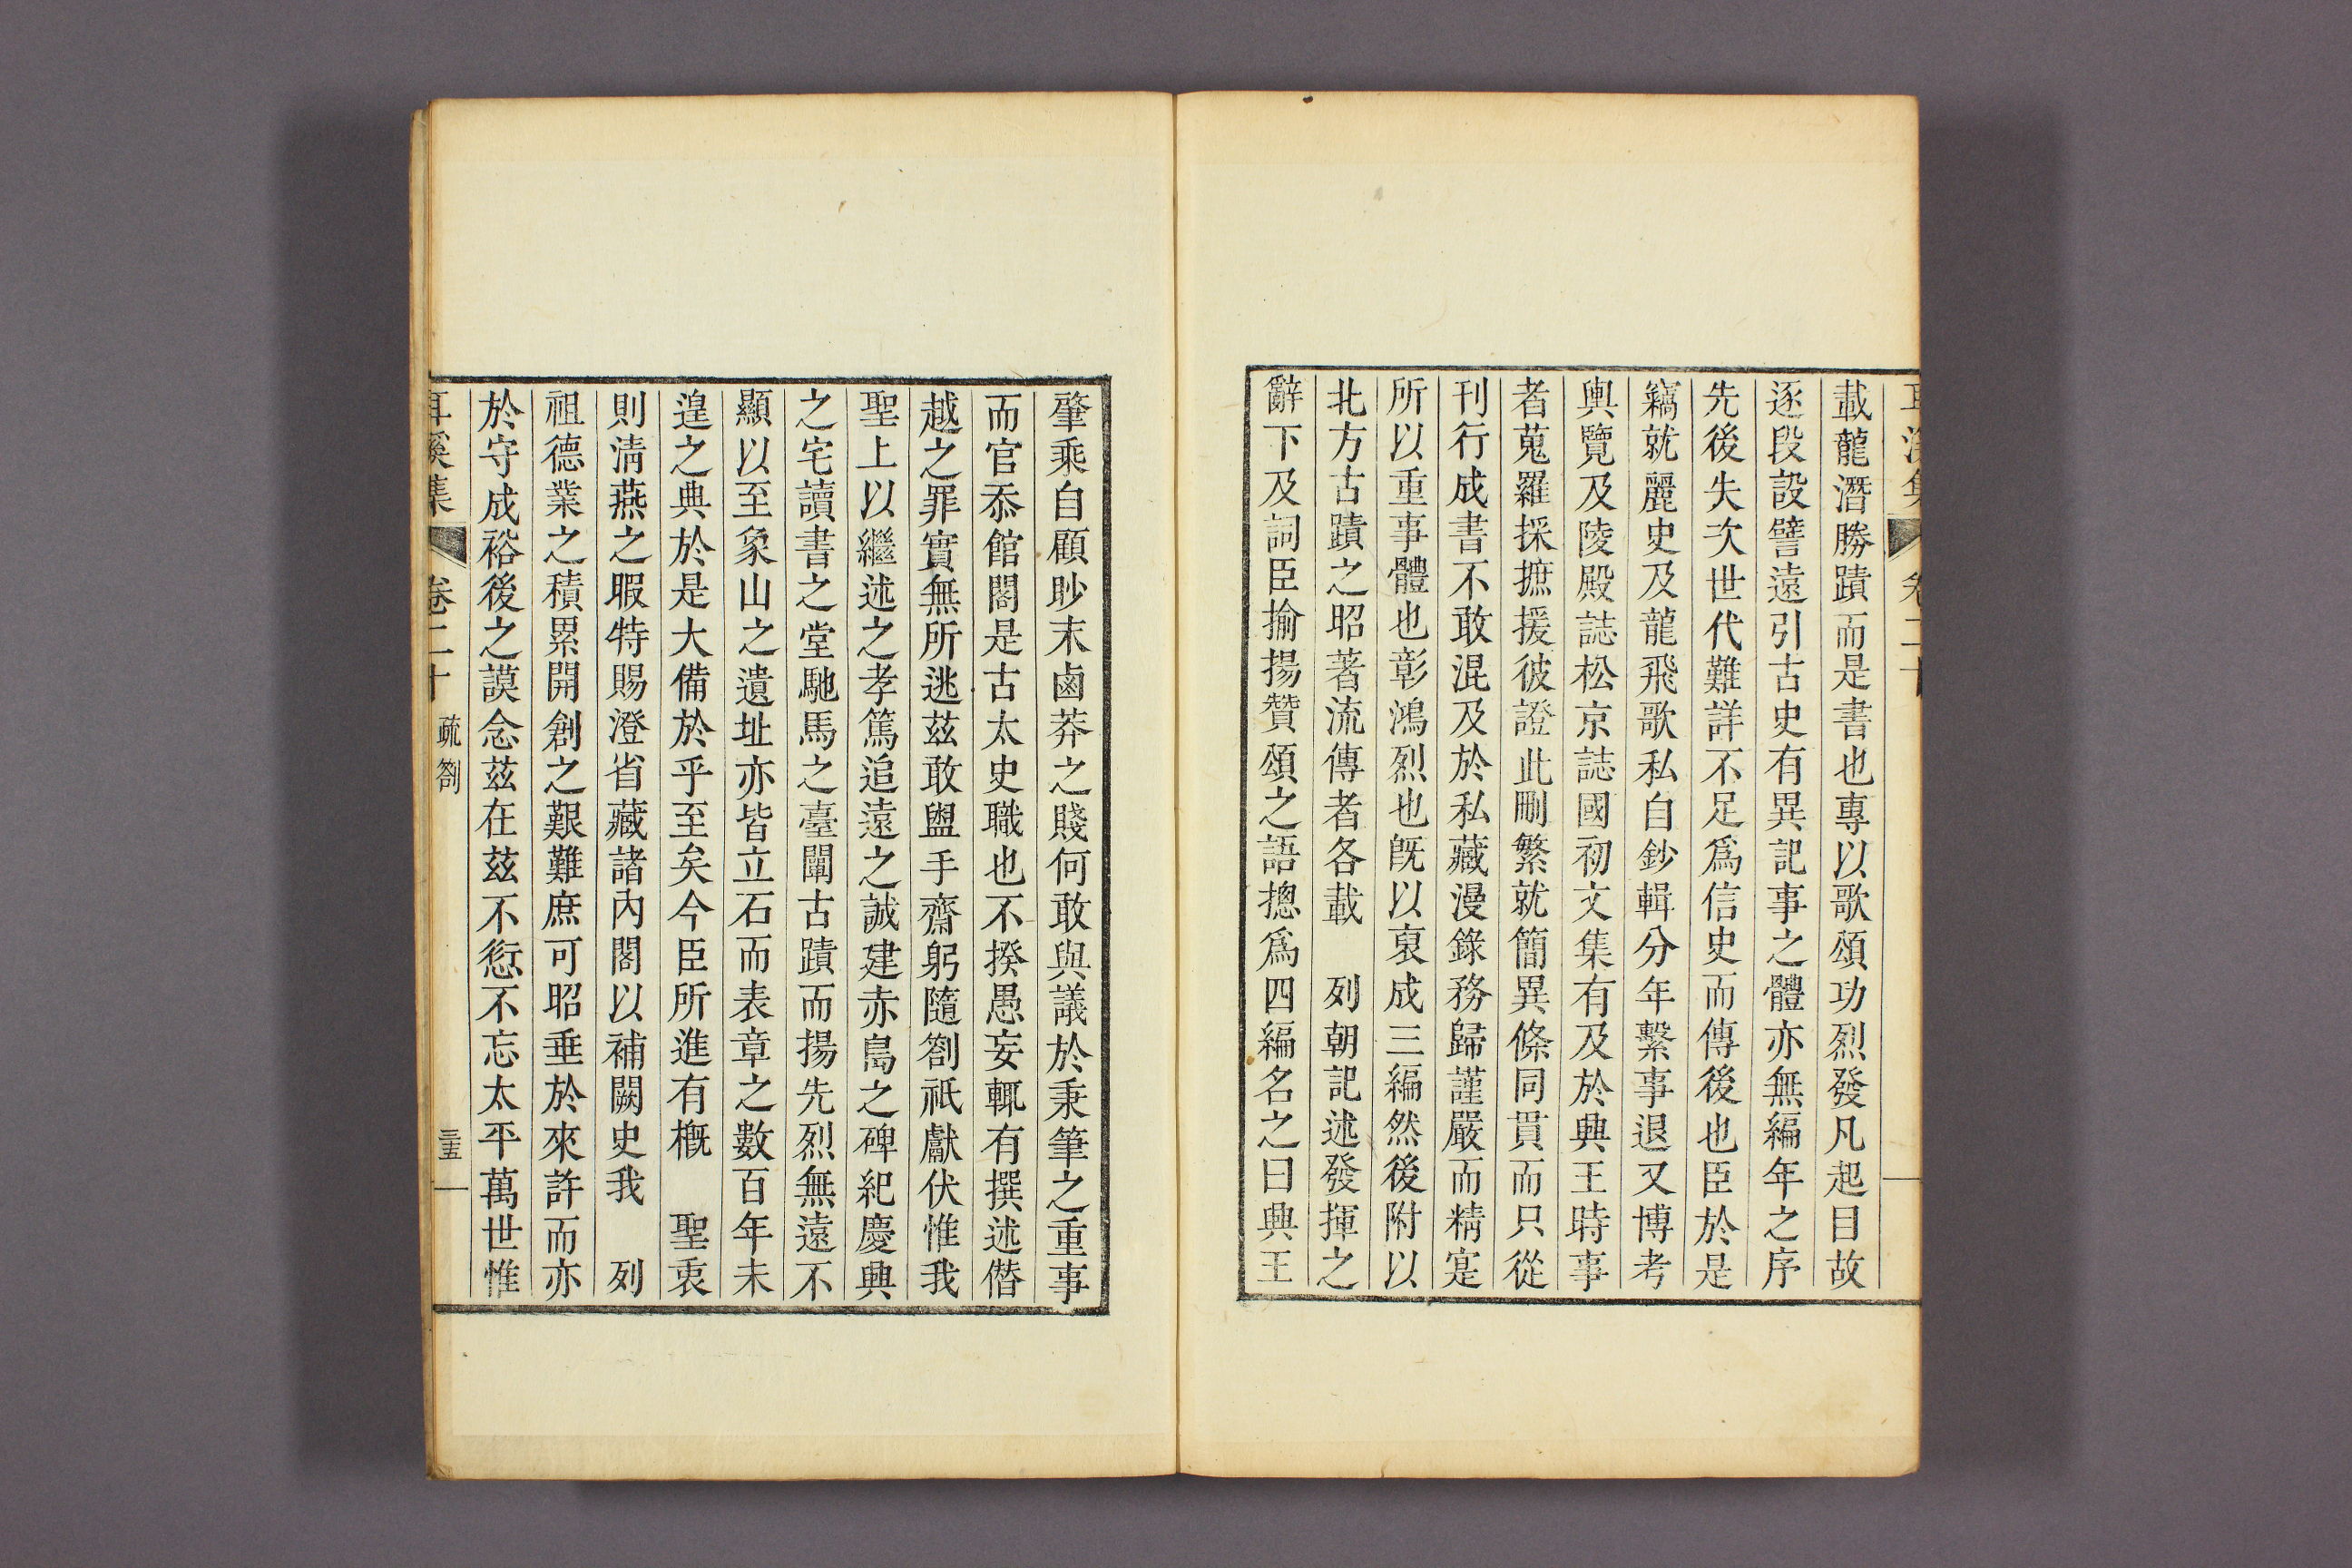 耳溪集 卷二十
載龍潛勝蹟而是書也專以歌頌功烈發凡起目故
逐段設譬遠引古史有異記事之體亦無編年之序
先後失次世代難詳不足爲信史而傳後也臣於是
竊就麗史及龍飛歌私自鈔輯分年繫事退又博考
輿覽及陵殿誌松京誌國初文集有及於興王時事
者蒐羅採摭援彼證此刪繁就簡異條同貫而只從
刊行成書不敢混及於私藏漫錄務歸謹嚴而精寔
所以重事體也彰鴻烈也旣以裒成三編然後附以
北方古蹟之昭著流傳者各載 列朝記述發揮之
辭下及詞臣揄揚贊頌之語摠爲四編名之曰興王
肇乘自顧眇末鹵莽之賤何敢與議於秉筆之重事
而官忝館閣是古太史職也不揆愚妄輒有撰述僭
越之罪實無所逃茲敢盥手齋躬隨劄祇獻伏惟我
聖上以繼述之孝篤追遠之誠建赤島之碑紀慶興
之宅讀書之堂馳馬之臺闡古蹟而揚先烈無遠不
顯以至象山之遺址亦皆立石而表章之數百年未
遑之典於是大備於乎至矣今臣所進有槪 聖衷
則淸燕之暇特賜澄省藏諸內閣以補闕史我 列
祖德業之積累開創之艱難庶可昭垂於來許而亦
於守成裕後之謨念茲在茲不愆不忘太平萬世惟
耳溪集 卷二十 疏劄 三五